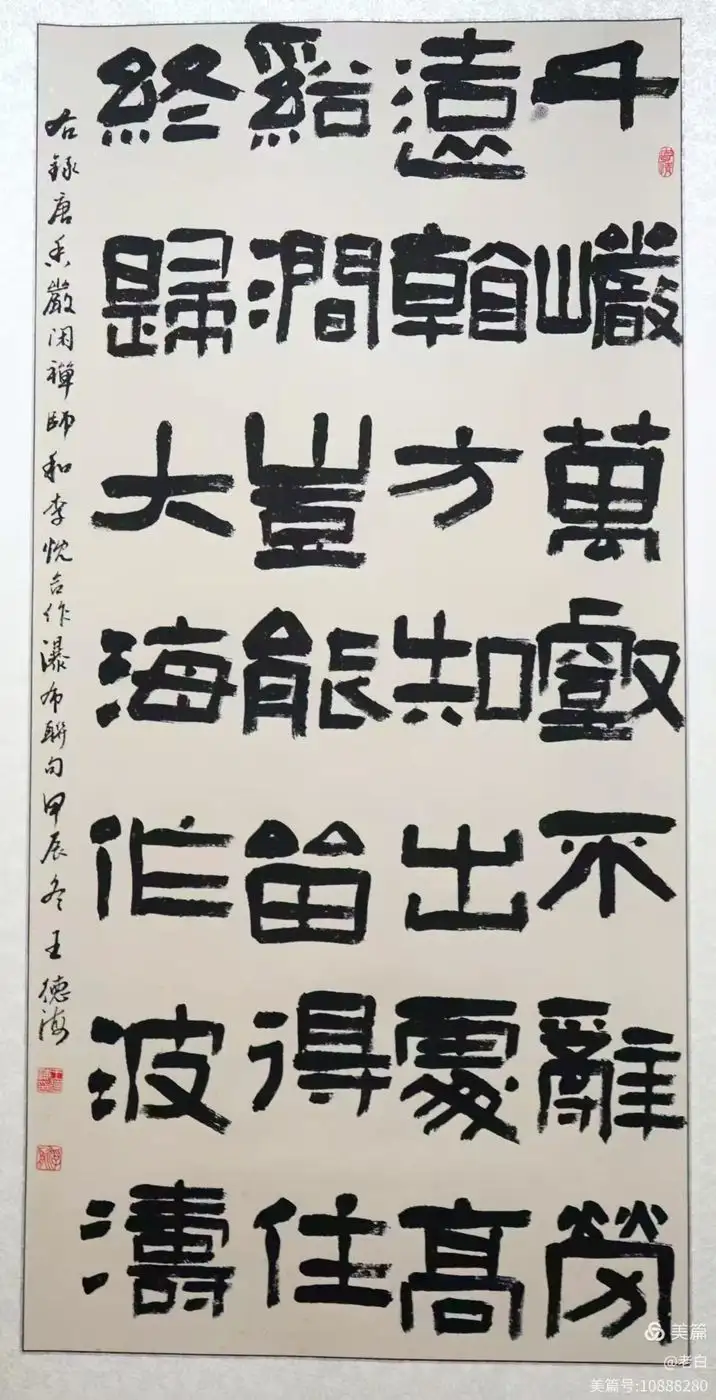 千巖萬壑不辭勞
遠看方知出處高
谿澗豈能留得住
終歸大海作波濤
右錄唐香嚴闲禪師和李忱合作瀑布聯句甲辰冬王德海
美篇
@老白
美篇号:10888280